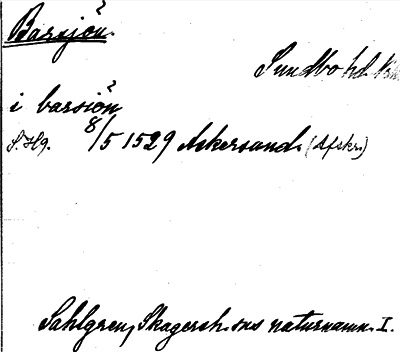 Barsjön
Sundbo hd.
i barsiön
S.Hg. 8/5 1529 Askersund. (Afskr.)
Sahlgren, Skagersh. sns naturnamn. I.